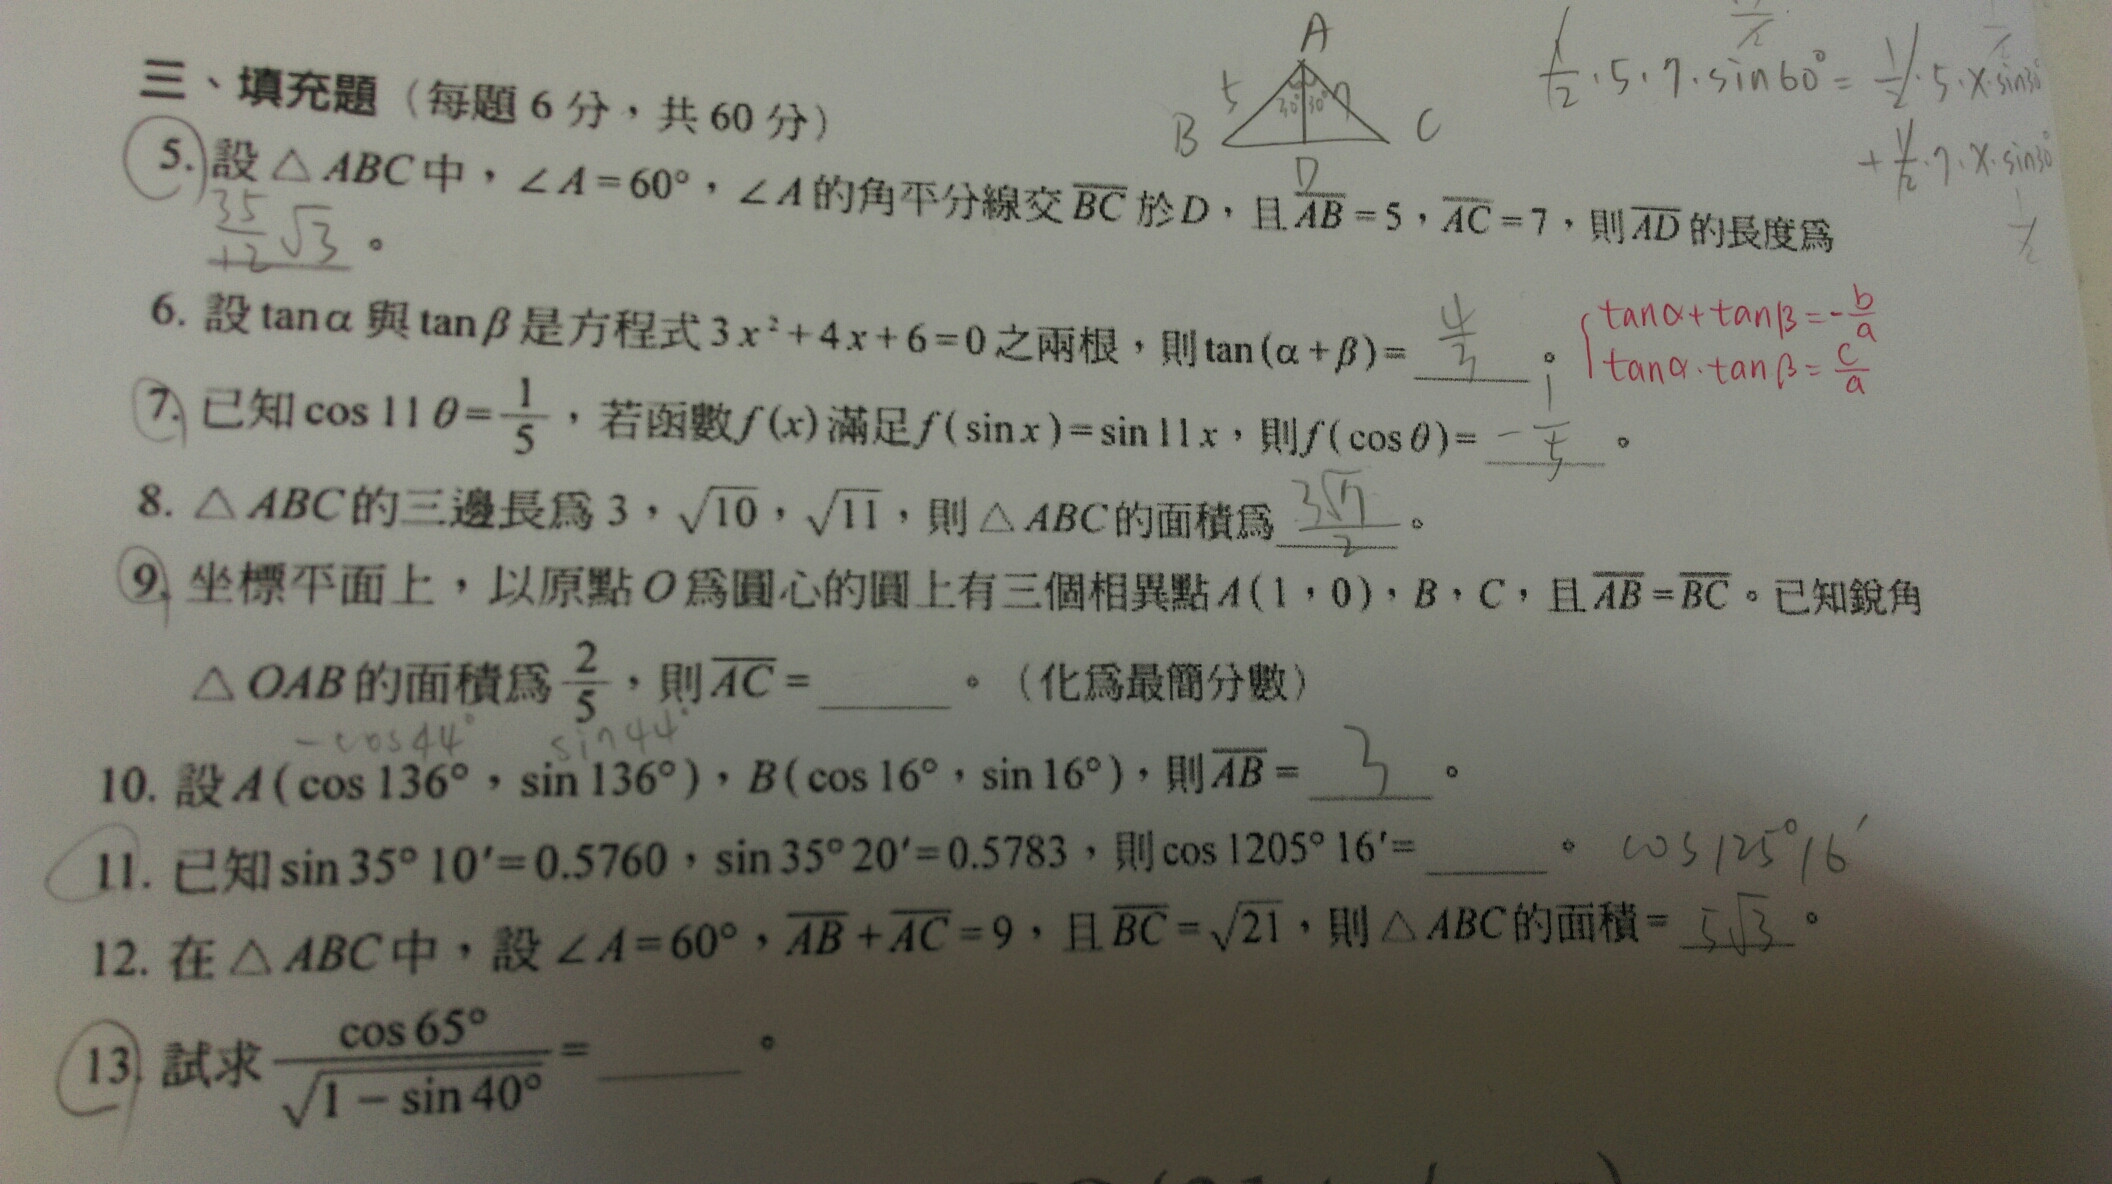 三、填充題（每題 6 分，共 60 分）
A
B
C
D
5
7
30°
30°
1/2·5·7·sin60° = 1/2·5·x·sin30°
+ 1/2·7·x·sin30°
5. 設△ABC中，∠A=60°，∠A的角平分線交BC於D，且AB=5，AC=7，則AD的長度為
35/12 √3 。
6. 設tanα與tanβ是方程式3x²+4x+6=0之兩根，則tan(α+β)= 4/3 。
tanα+tanβ=-b/a
tanα·tanβ=c/a
7. 已知cos11θ=1/5，若函數f(x)滿足f(sinx)=sin11x，則f(cosθ)= -1/5 。
8. △ABC的三邊長為3，√10，√11，則△ABC的面積為 。
9. 坐標平面上，以原點O為圓心的圓上有三個相異點A(1，0)，B，C，且AB=BC。已知銳角
△OAB的面積為2/5，則AC= 。（化為最簡分數）
-cos44° sin44°
10. 設A(cos136°，sin136°)，B(cos16°，sin16°)，則AB= 3 。
11. 已知sin35°10′=0.5760，sin35°20′=0.5783，則cos1205°16′= 。 cos125°16′
12. 在△ABC中，設∠A=60°，AB+AC=9，且BC=√21，則△ABC的面積= 5√3 。
13. 試求 cos65°/√(1-sin40°) = 。